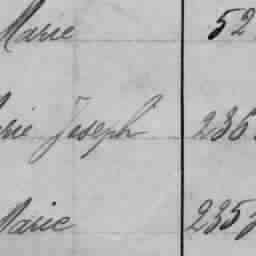 Marie 52
Marie Joseph 236
Marie 235